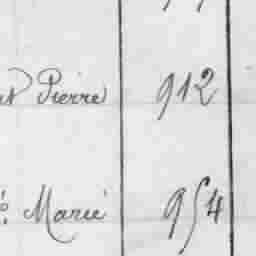 Pierre 912
Marie 954